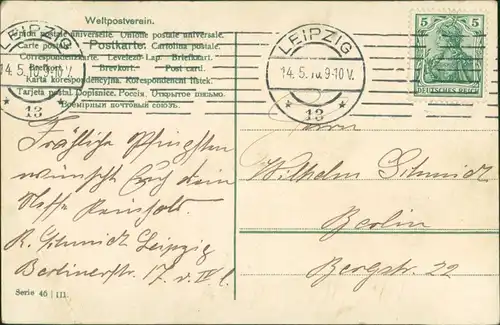 Weltpostverein.
Union postale universelle. Unione postale universale.
Carte postale Postkarte. Cartolina postale.
Correspondenzkarte. Levelező-Lap. Briefkaart.
Brefkort. Brevkort. Post card.
Karta korespondencyjna. Korespondenčni lístek.
Tarjeta postal. Dopisnice. Россія. Открытое письмо.
Всемірный почтовый союзъ.
LEIPZIG
14.5.10.9-10V.
* 13 *
LEIPZIG
14.5.10.9-10V.
* 13 *
5 5
DEUTSCHES REICH
Fröhliche Pfingsten
wünscht Euch dein
Neffe Reinhold.
R. Schmidt Leipzig
Berlinerstr. 17. v. IV l.
Herrn
Wilhelm Schmidt
Berlin
Bergstr. 22
Serie 46 | III.